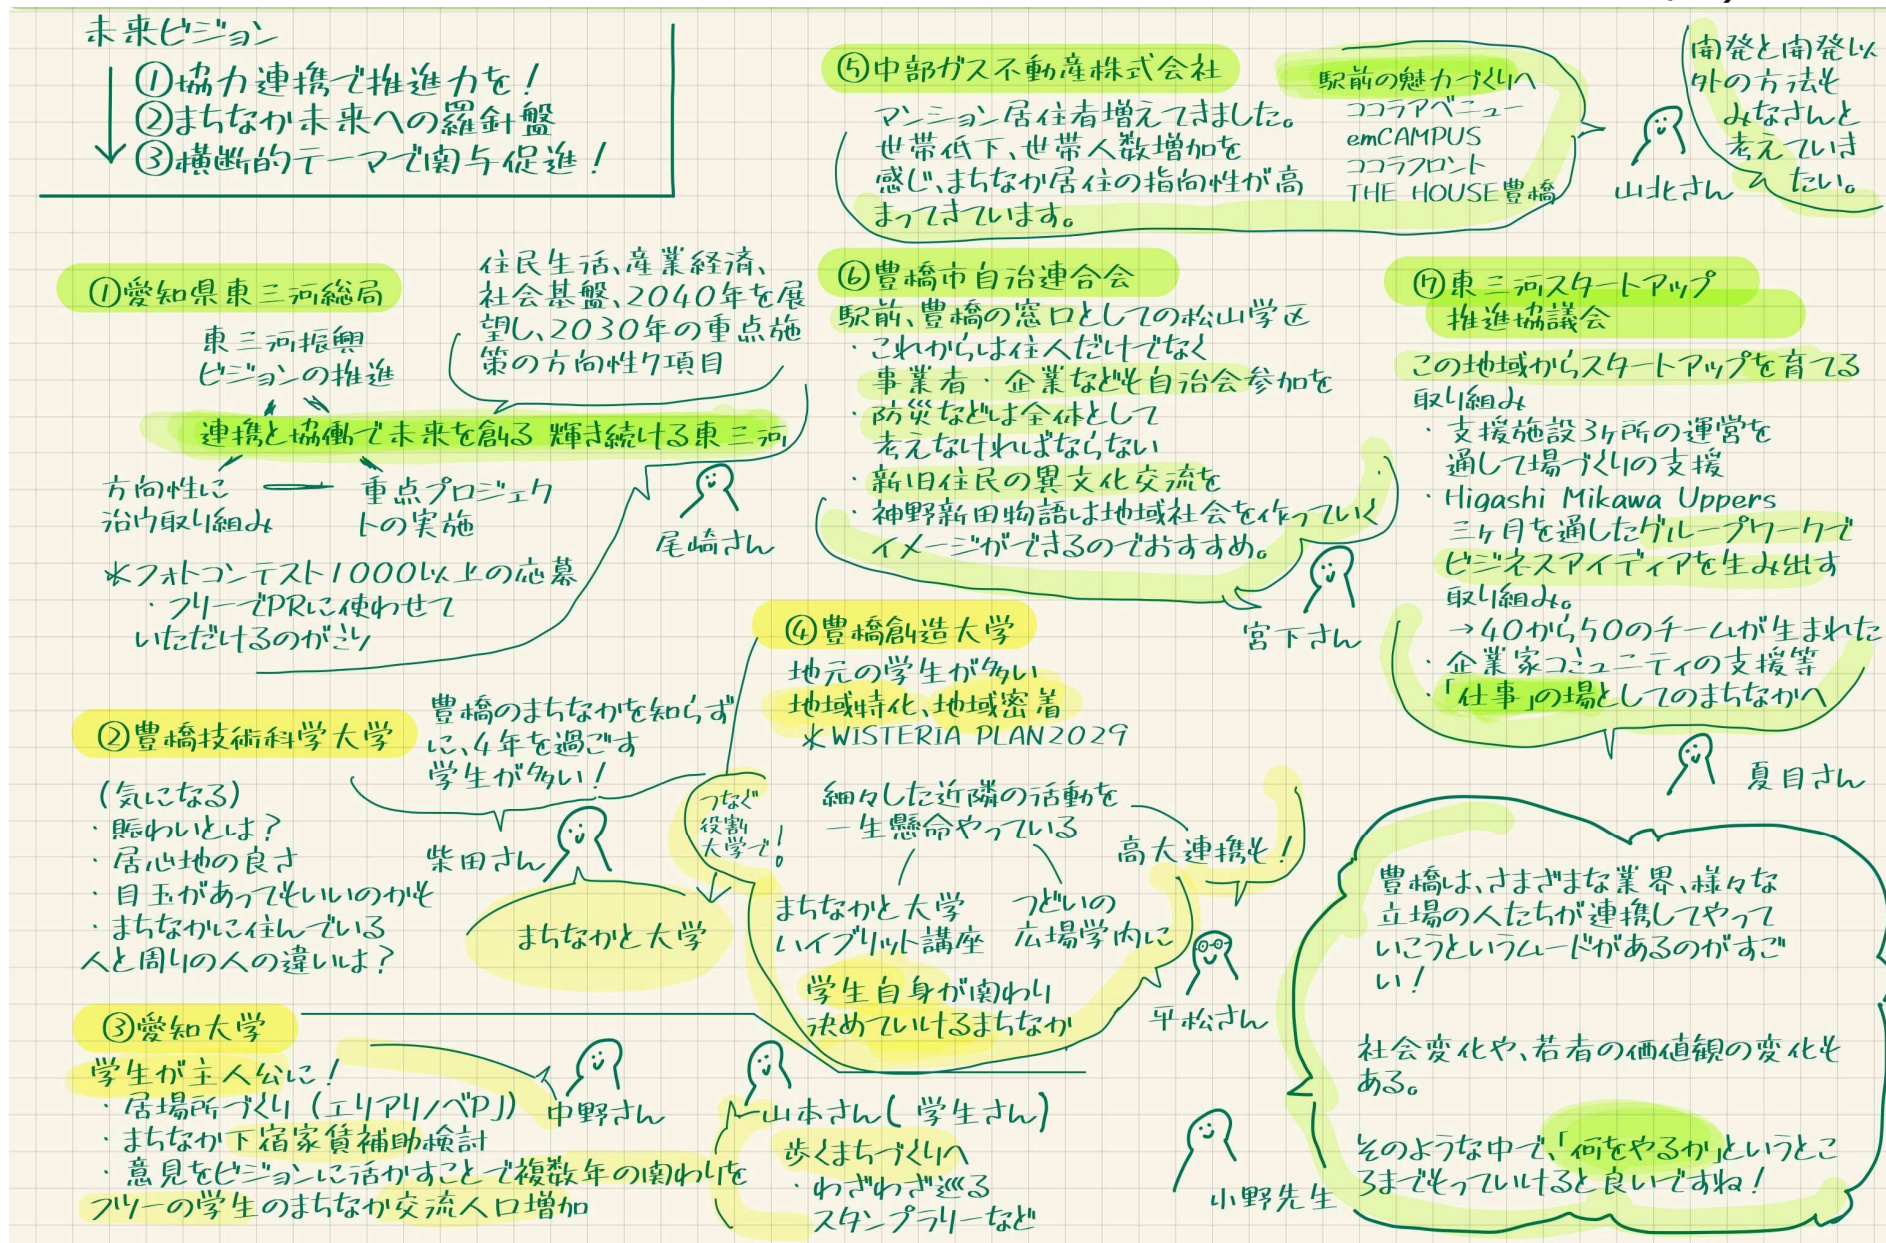 未来ビジョン
①協力連携で推進力を!
②まちなか未来への羅針盤
③横断的テーマで関与促進!
①愛知県東三河総局
東三河振興
ビジョンの推進
住民生活、産業経済、
社会基盤、2040年を展
望し、2030年の重点施
策の方向性7項目
連携と協働で未来を創る 輝き続ける東三河
方向性に
沿ウ取り組み
重点プロジェク
トの実施
尾崎さん
*フォトコンテスト1000以上の応募
・フリーでPRに使わせて
いただけるのがミソ
②豊橋技術科学大学
豊橋のまちなかを知らず
に、4年を過ごす
学生が多い!
(気になる)
・賑わいとは?
・居心地の良さ
・目玉があってもいいのかも
・まちなかに住んでいる
人と周りの人の違いは?
柴田さん
まちなかと大学
③愛知大学
学生が主人公に!
・居場所づくり(エリアリノベPJ)
・まちなか下宿家賃補助検討
・意見をビジョンに活かすことで複数年の関わりを
フツーの学生のまちなか交流人口増加
中野さん
山本さん(学生さん)
歩くまちづくりへ
・わざわざ巡る
スタンプラリーなど
④豊橋創造大学
地元の学生が多い
地域特化、地域密着
*WISTERIA PLAN2029
つなぐ
役割
大学で!
細々した近隣の活動を
一生懸命やっている
高大連携も!
まちなかと大学
ハイブリット講座
つどいの
広場学内に
学生自身が関わり
決めていけるまちなか
平松さん
⑤中部ガス不動産株式会社
マンション居住者増えてきました。
世帯低下、世帯人数増加を
感じ、まちなか居住の指向性が高
まってきています。
駅前の魅力づくりへ
ココラアベニュー
emCAMPUS
ココラフロント
THE HOUSE豊橋
山北さん
開発と開発以
外の方法も
みなさんと
考えていき
たい。
⑥豊橋市自治連合会
駅前、豊橋の窓口としての松山学区
・これからは住人だけでなく
事業者・企業なども自治会参加を
・防災などは全体として
考えなければならない
・新旧住民の異文化交流を
・神野新田物語は地域社会を作っていく
イメージができるのでおすすめ。
宮下さん
⑦東三河スタートアップ
推進協議会
この地域からスタートアップを育てる
取り組み
・支援施設3ヶ所の運営を
通して場づくりの支援
・Higashi Mikawa Uppers
三ヶ月を通したグループワークで
ビジネスアイディアを生み出す
取り組み。
→40から50のチームが生まれた
・企業家コミュニティの支援等
・「仕事」の場としてのまちなかへ
夏目さん
豊橋は、さまざまな業界、様々な
立場の人たちが連携してやって
いこうというムードがあるのがすご
い!
社会変化や、若者の価値観の変化も
ある。
そのような中で、「何をやるか」というとこ
ろまでもっていけると良いですね!
小野先生